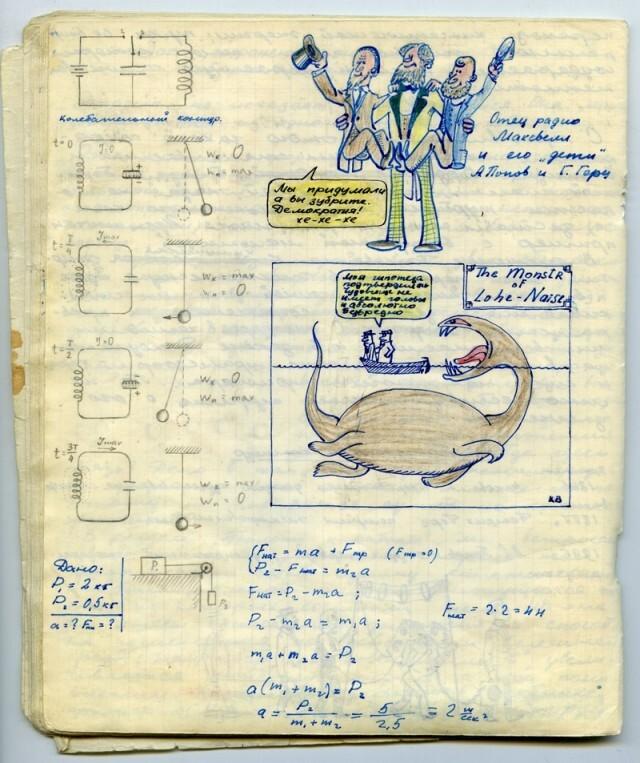 Колебательный контур.
t=0
J=0
Wк = 0
Wп = max
Jmax
Wк = max
Wп = 0
t=T/2
J=0
Wк = 0
Wп = max
t=3T/4
Jmax
Wк = max
Wп = 0
Отец радио
Максвелл
и его „дети"
А Попов и Г. Герц
Мы придумали
а вы зубрите.
Демократия!
хе-хе-хе
Моя гипотеза
подтвердилась
чудовище не
имеет головы
и абсолютно
безвредно
The Monstr
of
Lohe-Naise
КВ
Дано:
P₁ = 2 кг
P₂ = 0,5 кг
a=? Fн=?
P₁
P₂
Fнат = ma + Fтр (Fтр=0)
P₂ - Fнат = m₂a
Fнат = P₂ - m₂a ;
P₂ - m₂a = m₁a ;
m₁a + m₂a = P₂
a(m₁ + m₂) = P₂
a = P₂/(m₁+m₂) = 5/2,5 = 2 м/сек²
Fнат = 2·2 = 4н